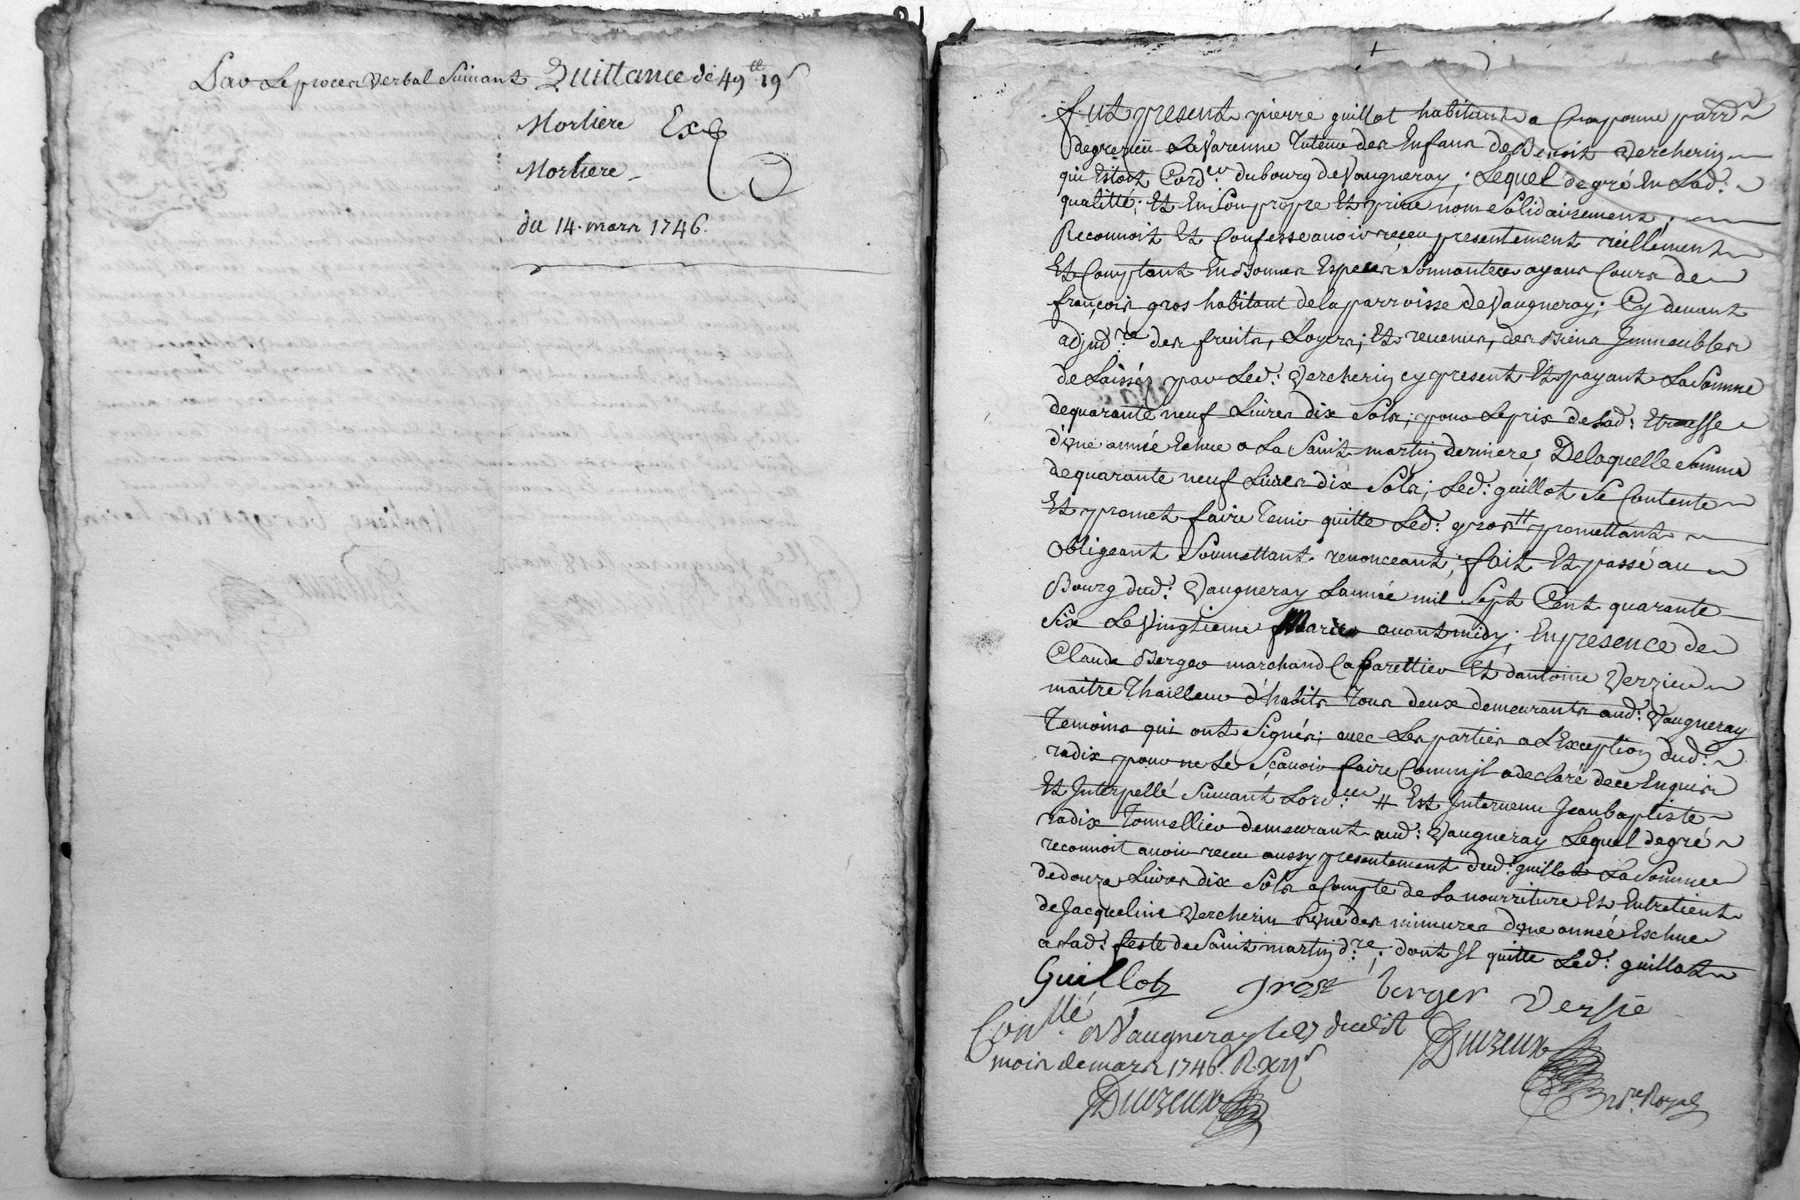 Par Le proces Verbal Suivant Quittance de 49 ᵗᵗ 19 ˢ
Mortiere Ex
Mortiere
du 14. mars 1746.
fut present pierre guillot habitant a Craponne parr.
de grezieü La Varenne Tuteur des Enfans de Benoit Vercherin
qui Estoit Cord.ᵉʳ du bourg de Vaugneray; Lequel de gré En Lad.
qualitté; Et En Son propre Et prive nom Solidairement,
Reconnoit Et Confesse avoir reçeu presentement reéllement
Et Comptant En Bonnes Especes Sonnantes ayans Cours de
françois gros habitant de la parroisse de Vaugneray; Cy devant
adjud.ʳᵉ des fruits, Loyers; Et revenus, des Biens Jmmeubles
de Laissés par Led. Vercherin cy present Et payant La Somme
de quarante neuf Livres dix Sols; pour Le prix de Lad.
d'une année Echue a La Saint martin derniere; De laquelle Somme
de quarante neuf Livres dix Sols; Led. guillot Se Contente
Et promet faire Tenir quitte Led. gros # promettant
obligeant Soumettant renonceant; fait Et passé au
Bourg dud. Vaugneray L'année mil Sept Cent quarante
Six Le Vingtieme Mars avant midy; En presence de
Claude Berger marchand Cabarettier Et d'antoine Verzieu
maitre Thailleur d'habits Tous deux demeurants aud. Vaugneray
Temoins qui ont Signés; avec Les parties a L'Exception dud.
radix pour ne Le Sçavoir faire Comm'jl a declaré de ce Enquis
Et Jnterpellé Suivant Lord.ᶜᵉ # Est Jntervenu Jean baptiste
radix Tonnellier demeurant aud. Vaugneray Lequel de gré
reconnoit avoir receu aussy presentement dud. guillot La Somme
de douze Livres dix Sols a Compte de La nourriture Et Entretient
de Jacqueline Vercherin L'une des mineures d'une année Echue
a Lad. feste de Saint martin d.ʳᵉ; dont Jl quitte Led. guillot
Guillot gros berger Versie
Con.ˡˡᵉ́ a Vaugneray le 27 dudit Duizeux
mois de mars 1746. R. xij ˢ
Duizeux n.ʳᵉ Royal